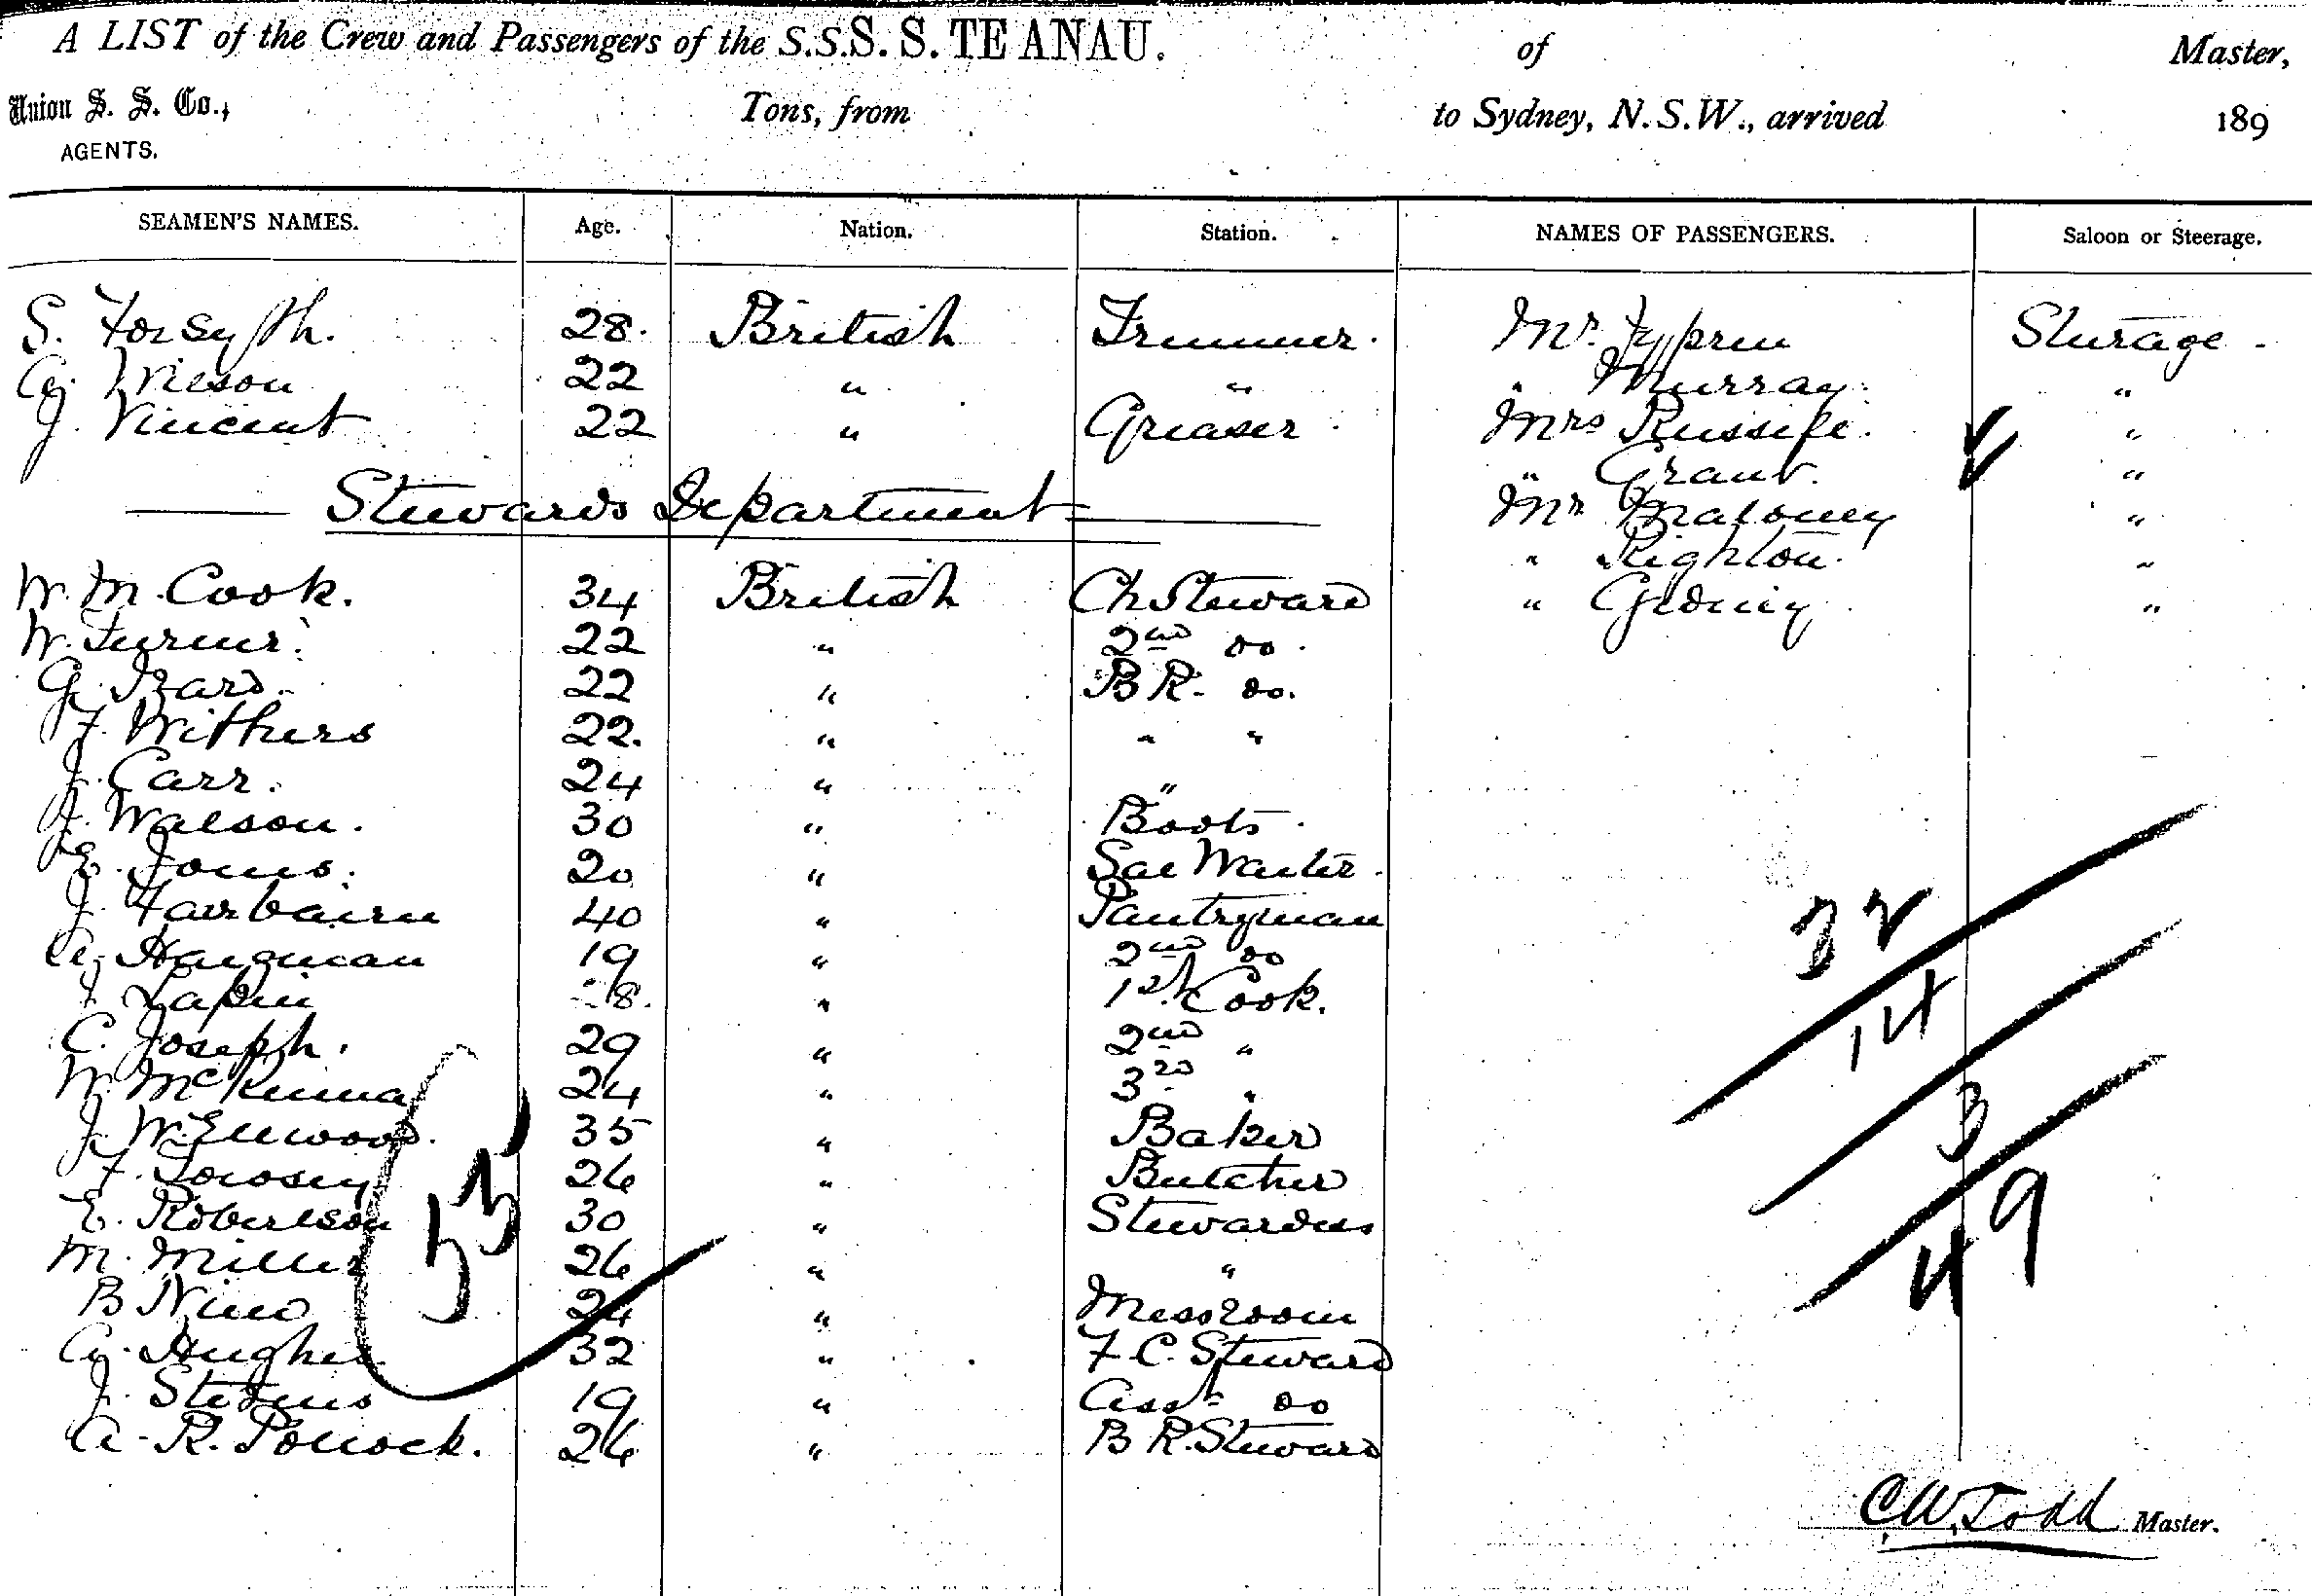 A LIST of the Crew and Passengers of the S.S. S. S. TE ANAU. of Master,
Union S. S. Co., AGENTS. Tons, from to Sydney, N.S.W., arrived 189
SEAMEN'S NAMES. Age. Nation. Station. NAMES OF PASSENGERS. Saloon or Steerage.
S. Forsyth. 28. British Trimmer. Mr. Steerage.
Wilson 22 " " " Murray. "
J. Vincent 22 " Greaser Mrs Russell. "
" Grant. "
Stewards Department
Mr Maloney "
" Righton. "
W. M. Cook. 34 British Ch Steward " Gedney "
W. Turner. 22 " 2nd do.
G. Izard. 22 " B R. do.
F. Withers 22. " " "
J. Carr. 24 " "
J. Watson. 30 " Boots.
E. Jones. 20 " Sal Waiter.
J. Fairbairn 40 " Pantryman
A. Hangman 19 " 2nd do
J. 28. " 1st Cook.
C. Joseph. 29 " 2nd "
W. McKenna 24 " 3rd "
J. W. Ellwood. 35 " Baker
F. Towsey 26 " Butcher
E. Robertson 30 " Stewardess
M. Miller 26 " "
B Nimo 24 " Messroom
Hughes 32 " F. C. Steward
J. Stevens 19 " Asst do
A. R. Pollock. 26 " B R. Steward
53
32
14
3
49
C.W. Todd Master.